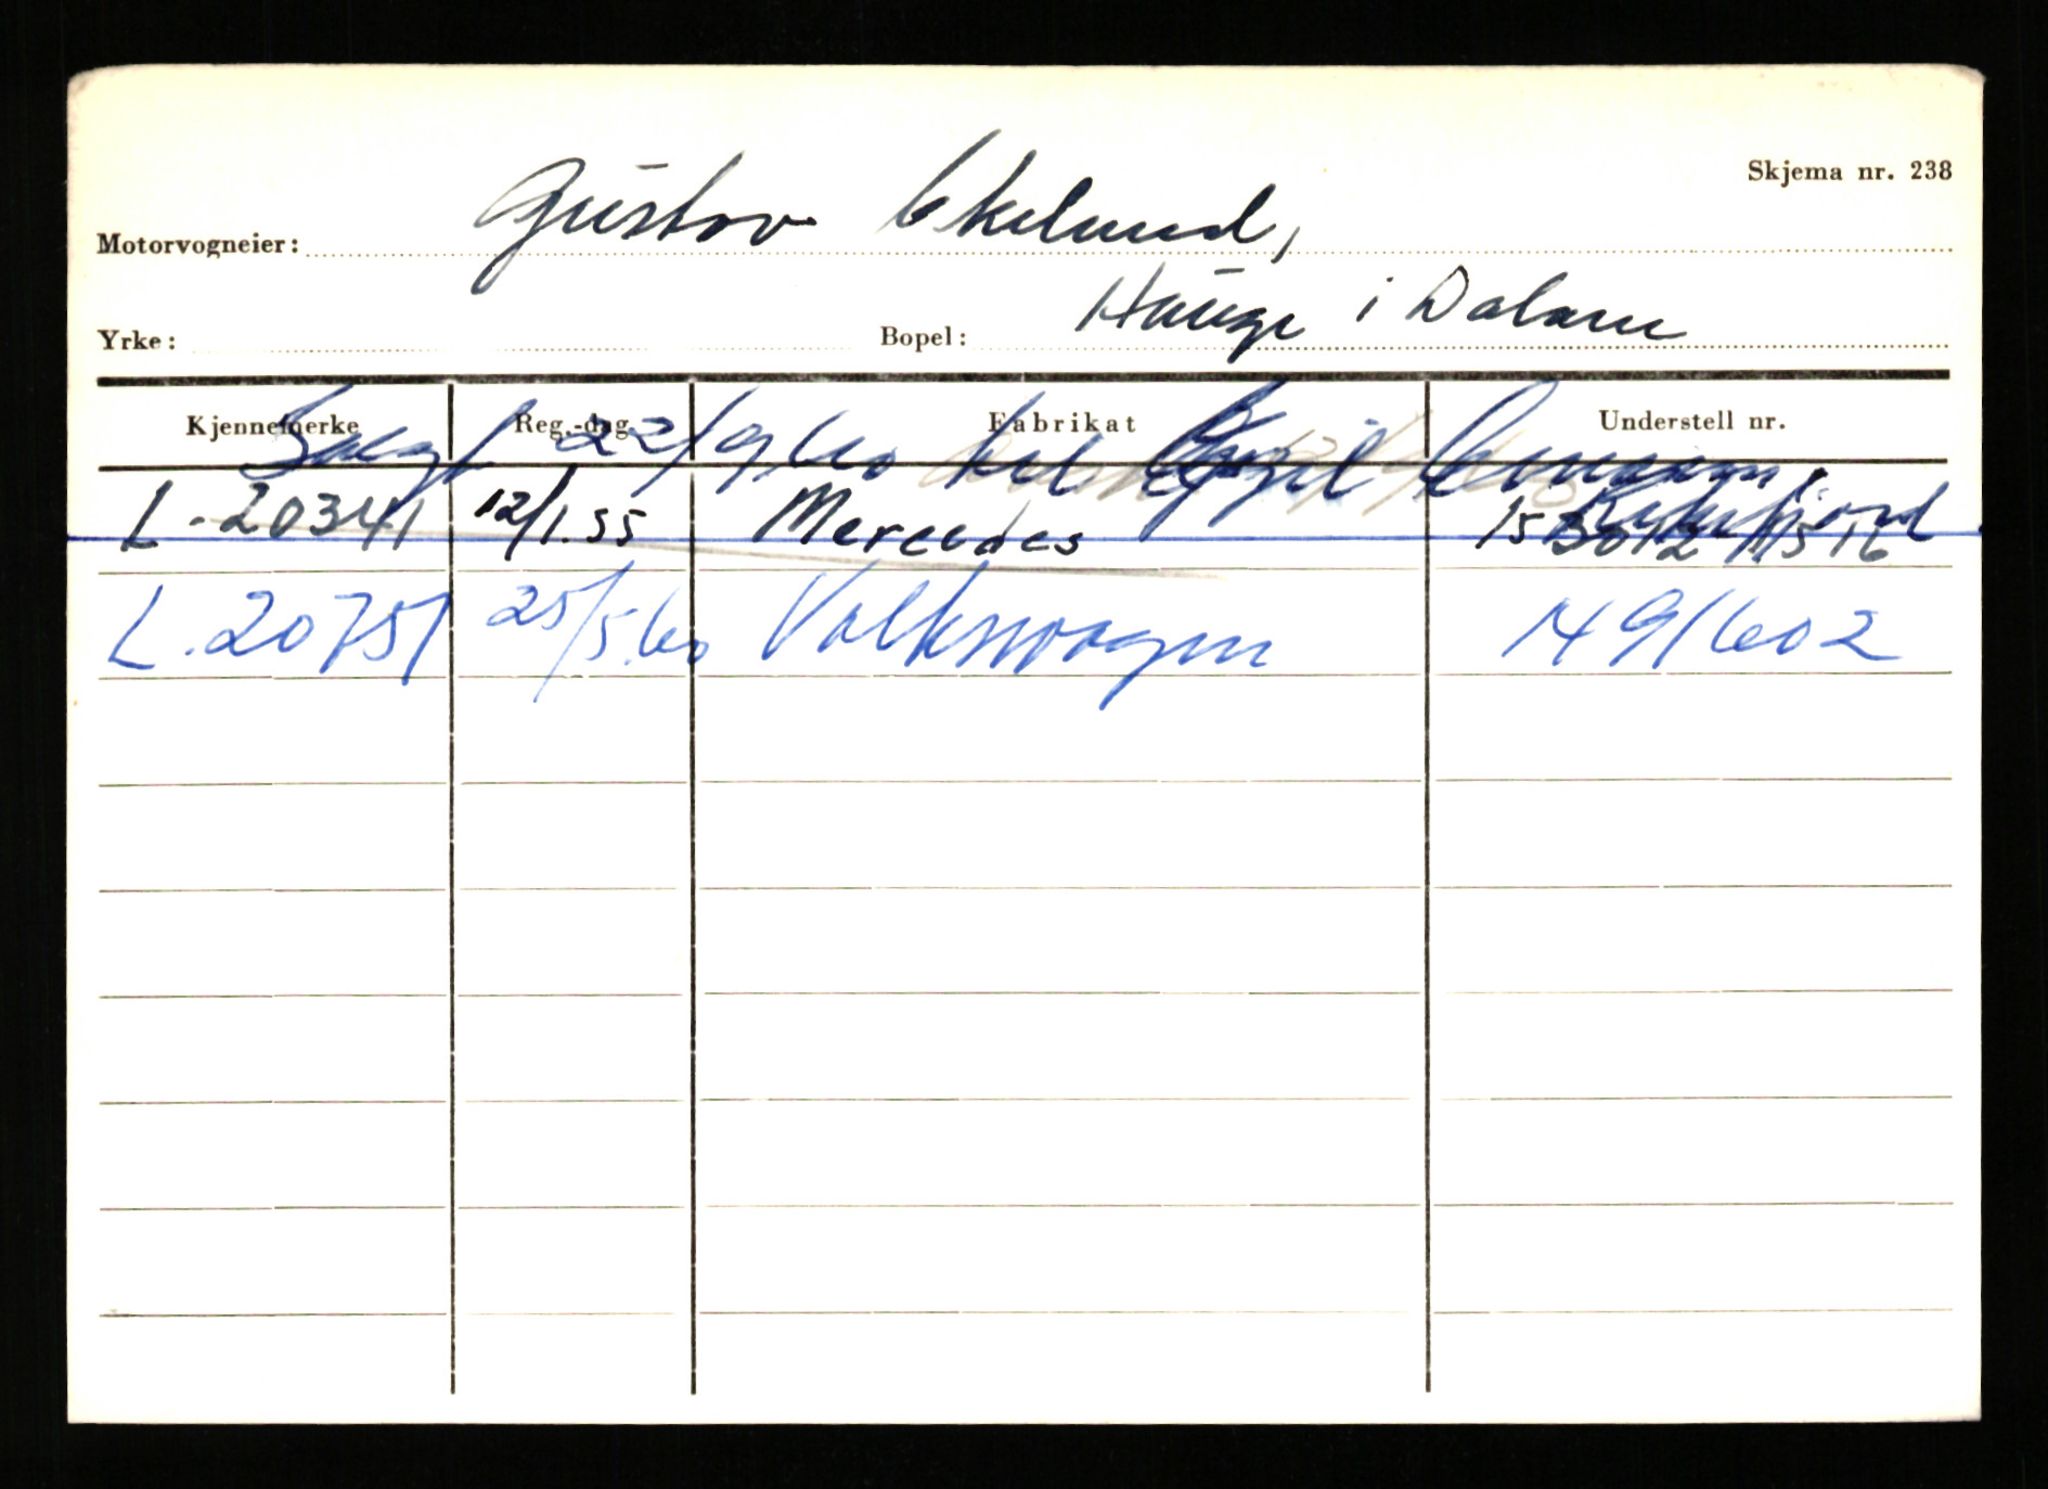 Skjema nr. 238
Motorvogneier: Gustav Ekelund,
Yrke: Bopel: Hauge i Dalane
Kjennemerke Reg.-dag Fabrikat Understell nr.
Solgt 22/9/60 til Emil
L-20341 12/1.55 Mercedes
L.20751 25/5.60 Volkswagen 1491602